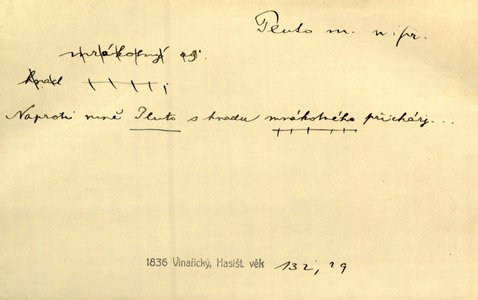 Pluto m. n. pr.
mrákotný adj.
hrad
Naproti mně Pluto s hradu mrákotného přichází...
1836 Vinařický, Hasišt. věk 132, 29